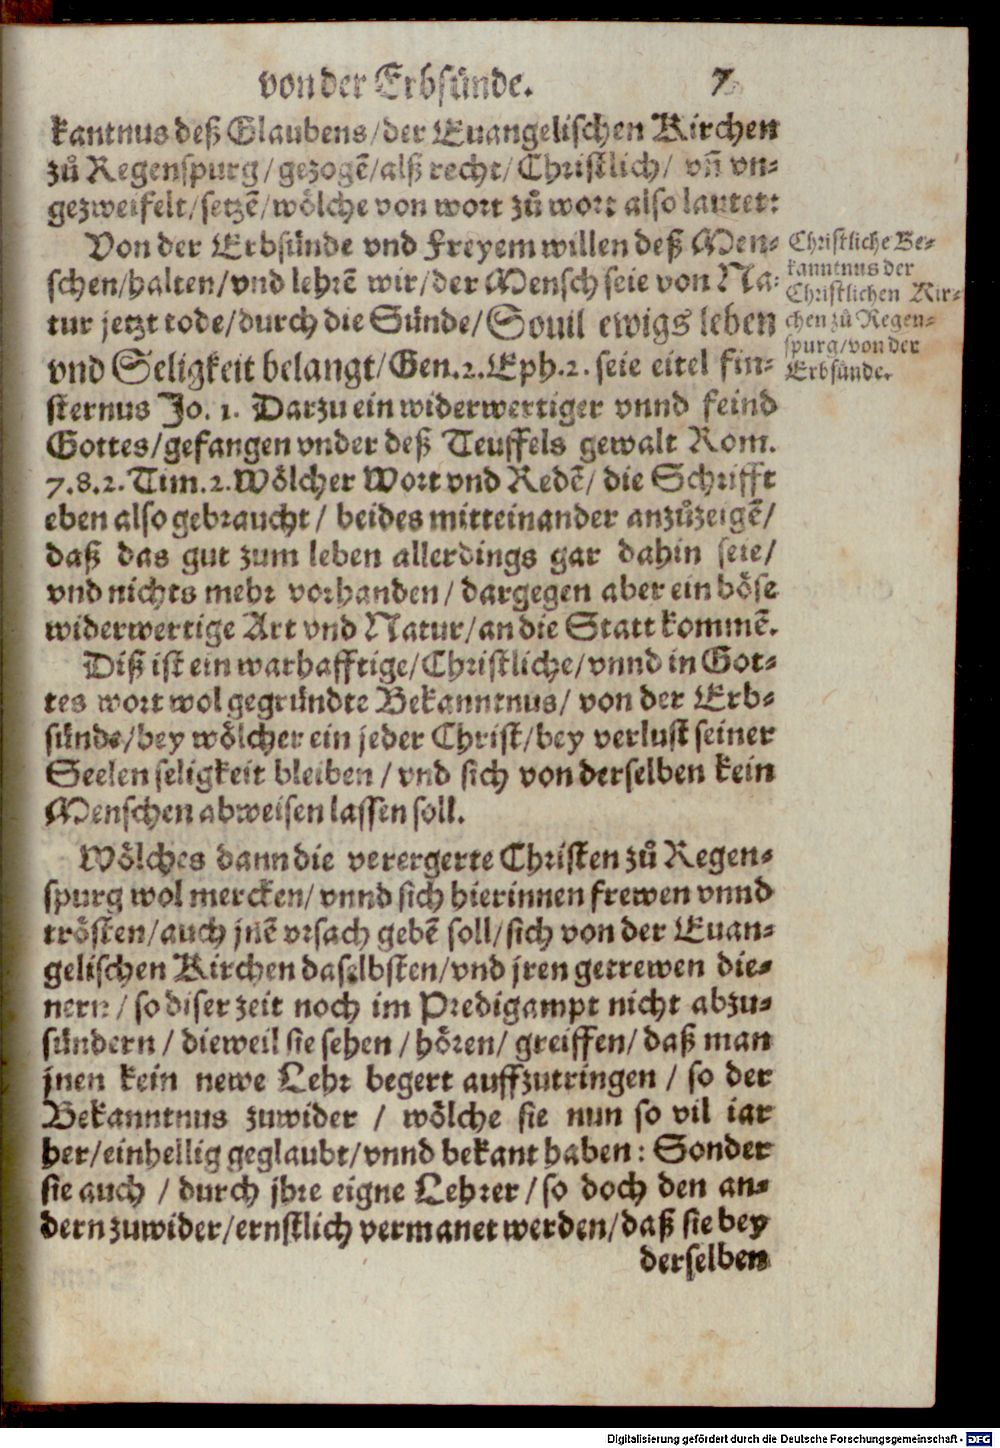 von der Erbsünde. 7
kantnus deß Glaubens/der Euangelischen Kirchen
zů Regenspurg/gezogẽ/alß recht/Christlich/ vñ vn-
gezweifelt/setzẽ/wölche von wort zů wort also lautet:
Von der Erbsünde vnd Freyem willen deß Men-
schen/halten/vnd lehrẽ wir/der Mensch seie von Na-
tur jetzt tode/durch die Sünde/Souil ewigs leben
vnd Seligkeit belangt/Gen.2.Eph.2. seie eitel fin-
sternus Jo. 1. Darzu ein widerwertiger vnnd feind
Gottes/gefangen vnder deß Teuffels gewalt Rom.
7.8.2.Tim.2.Wölcher Wort vnd Redẽ/ die Schrifft
eben also gebraucht/ beides mitteinander anzůzeigẽ/
daß das gut zum leben allerdings gar dahin seie/
vnd nichts mehr vorhanden/ dargegen aber ein böse
widerwertige Art vnd Natur/an die Statt kommẽ.
Diß ist ein warhafftige/Christliche/vnnd in Got-
tes wort wol gegründte Bekanntnus/ von der Erb-
sünde/bey wölcher ein jeder Christ/bey verlust seiner
Seelen seligkeit bleiben/ vnd sich von derselben kein
Menschen abweisen lassen soll.
Wölches dann die verergerte Christen zů Regen-
spurg wol mercken/ vnnd sich hierinnen frewen vnnd
trösten/auch jnẽ vrsach gebẽ soll/sich von der Euan-
gelischen Kirchen daselbsten/vnd jren getrewen die-
nern/ so diser zeit noch im Predigampt nicht abzu-
sündern/ dieweil sie sehen/hören/ greiffen/ daß man
jnen kein newe Lehr begert auffzutringen/ so der
Bekanntnus zuwider/ wölche sie nun so vil iar
her/einhellig geglaubt/vnnd bekant haben: Sonder
sie auch/ durch jhre eigne Lehrer/so doch den an-
dern zuwider/ernstlich vermanet werden/daß sie bey
derselben
Christliche Be-
kanntnus der
Christlichen Kir-
chen zů Regen-
spurg/von der
Erbsünde.
Digitalisierung gefördert durch die Deutsche Forschungsgemeinschaft - DFG